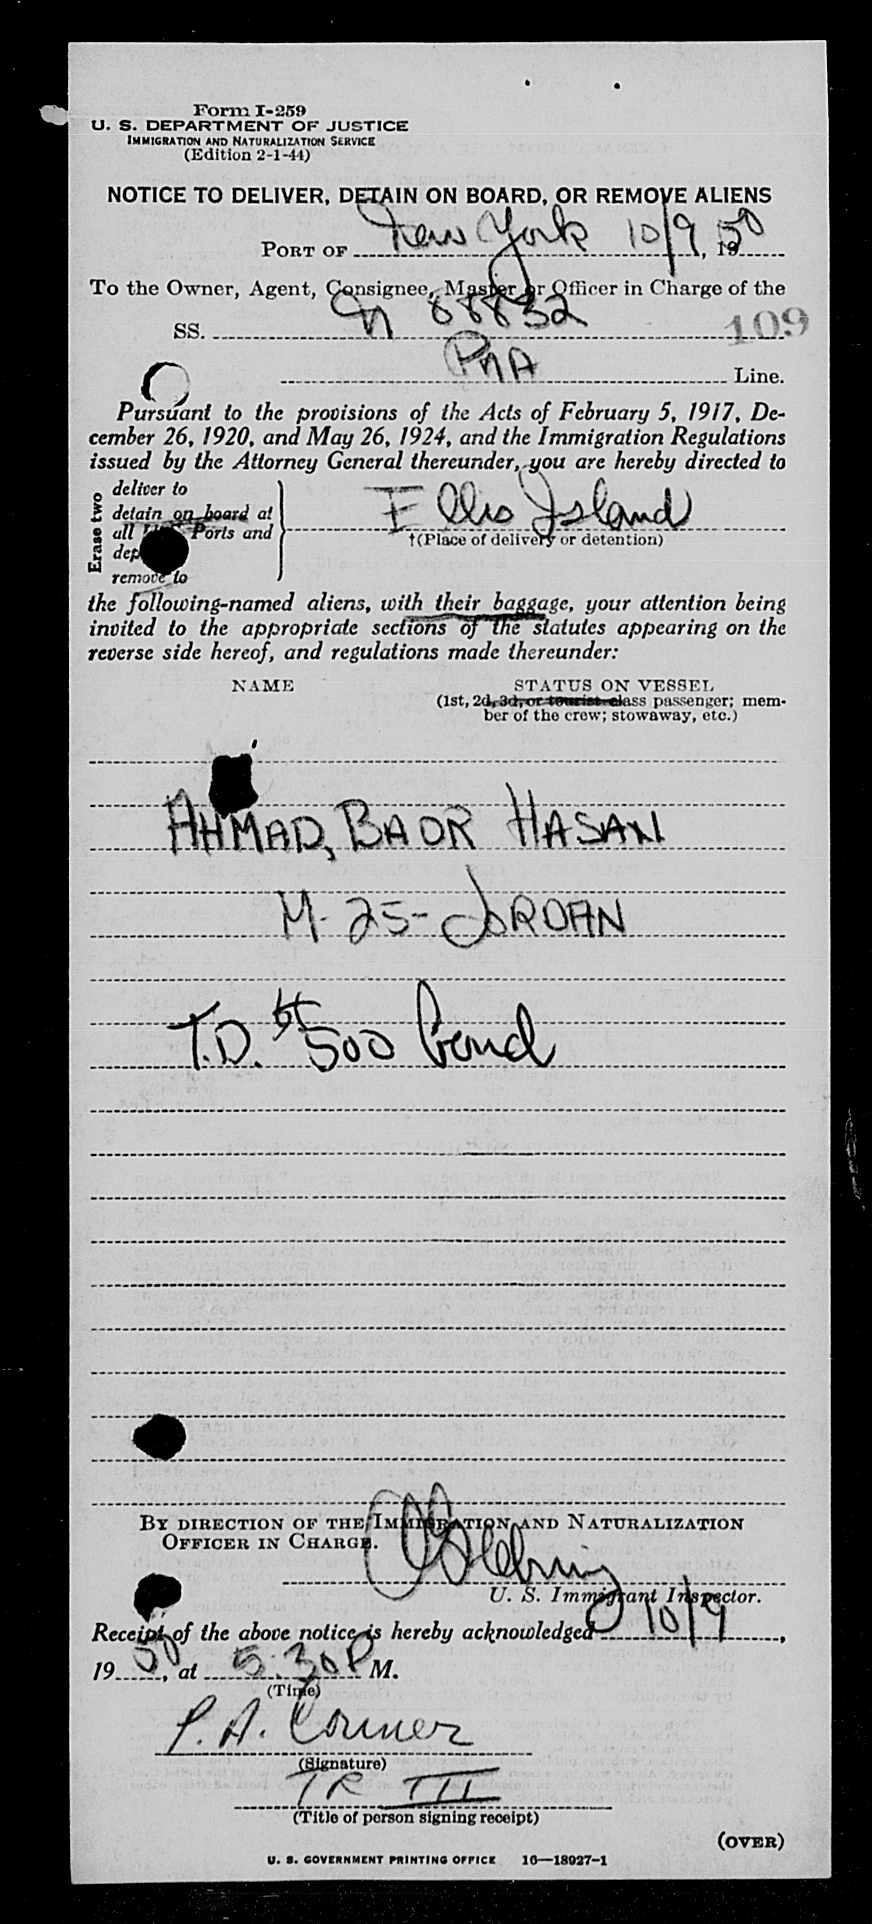 Form I-259
U. S. DEPARTMENT OF JUSTICE
IMMIGRATION AND NATURALIZATION SERVICE
(Edition 2-1-44)
NOTICE TO DELIVER, DETAIN ON BOARD, OR REMOVE ALIENS
PORT OF New York 10/9, 1950
To the Owner, Agent, Consignee, Master or Officer in Charge of the
SS. N 88832 109
PAA Line.
Pursuant to the provisions of the Acts of February 5, 1917, De-
cember 26, 1920, and May 26, 1924, and the Immigration Regulations
issued by the Attorney General thereunder, you are hereby directed to
Erase two
deliver to
detain on board at
all Ports and
remove to
Ellis Island
†(Place of delivery or detention)
the following-named aliens, with their baggage, your attention being
invited to the appropriate sections of the statutes appearing on the
reverse side hereof, and regulations made thereunder:
NAME STATUS ON VESSEL
(1st, 2d, 3d, or tourist class passenger; mem-
ber of the crew; stowaway, etc.)
AHMAD, BADR HASAN
M-25-JORDAN
T.D. $500 bond
BY DIRECTION OF THE IMMIGRATION AND NATURALIZATION
OFFICER IN CHARGE.
U. S. Immigrant Inspector.
Receipt of the above notice is hereby acknowledged 10/9,
1950, at 5:30 P M.
(Time)
P. A. Conner
(Signature)
TR
(Title of person signing receipt)
(OVER)
U. S. GOVERNMENT PRINTING OFFICE 16—18027-1